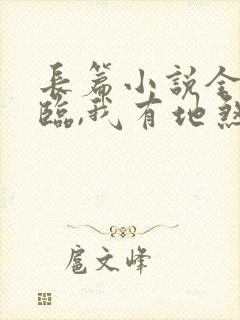 長篇小說全
臨,我有地煞
扈文峰